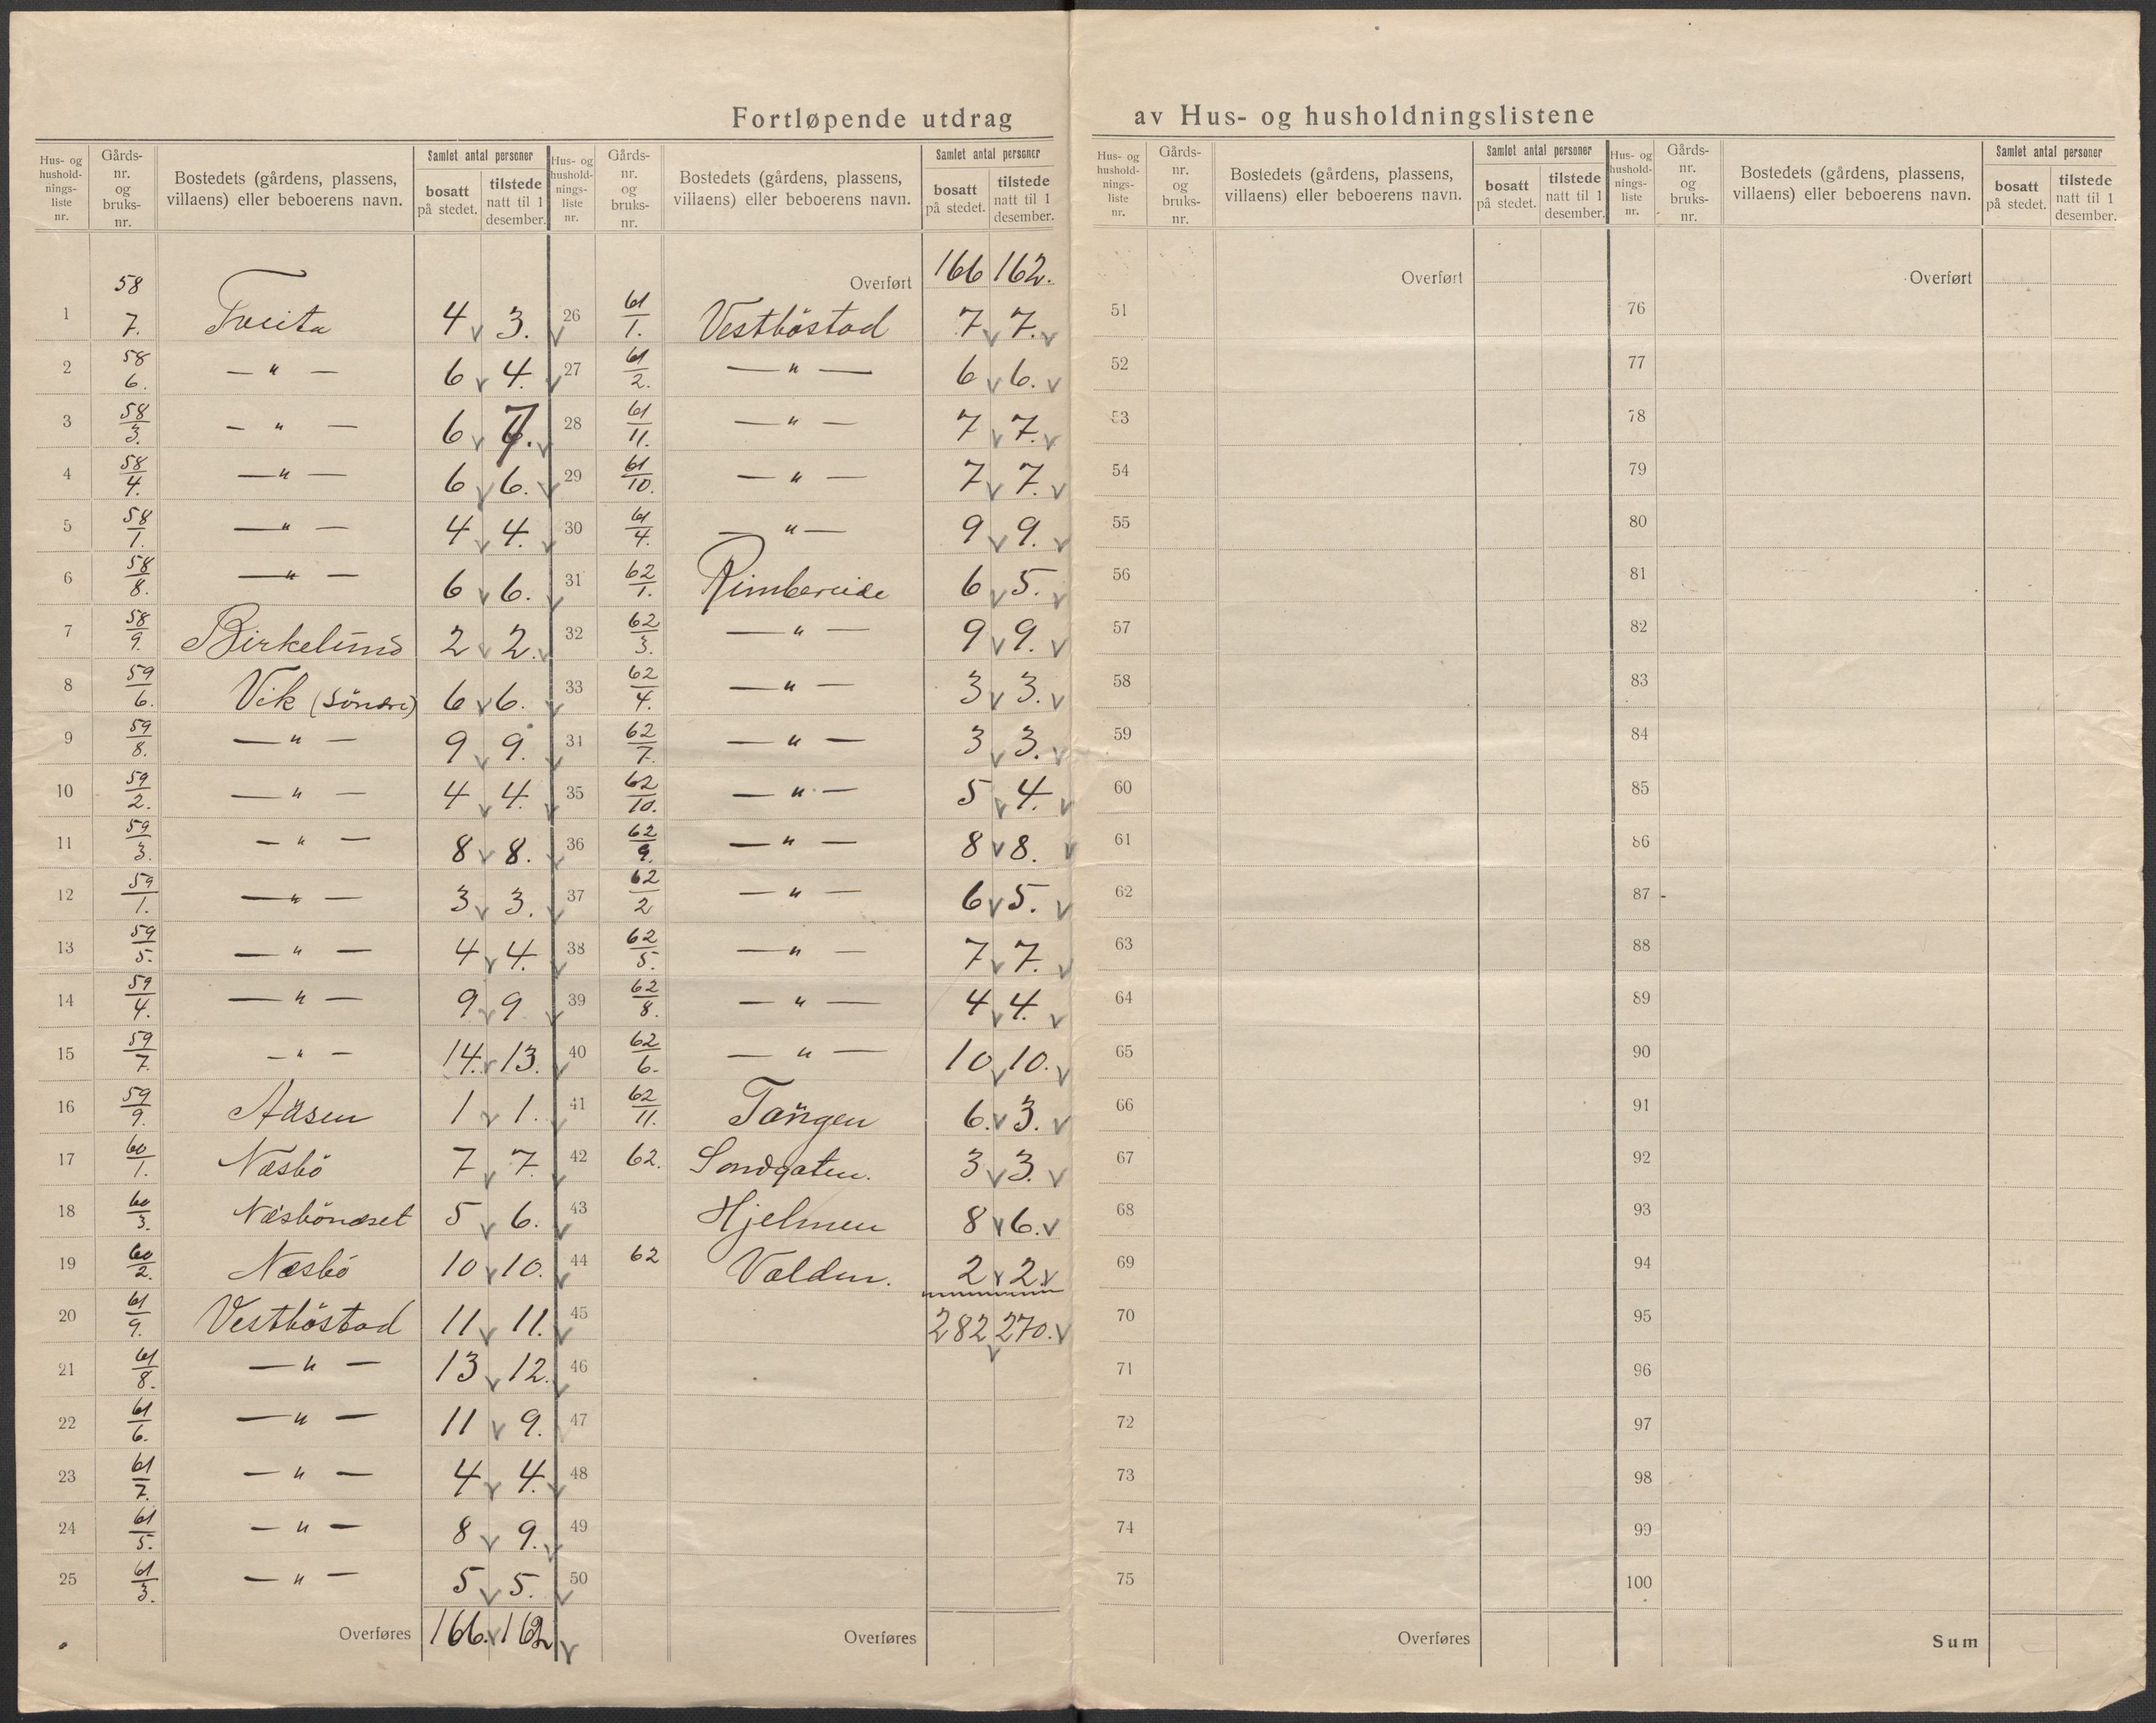 Fortløpende utdrag av Hus- og husholdningslistene
Hus- og hushold-nings-liste nr. Gårds-nr. og bruks-nr. Bostedets (gårdens, plassens, villaens) eller beboerens navn. Samlet antal personer bosatt på stedet. tilstede natt til 1 desember.
1 58/7. Tveita 4 3.
2 58/6. — " — 6 4.
3 58/3. — " — 6 7.
4 58/4. — " — 6 6.
5 58/1. — " — 4 4.
6 58/8. — " — 6 6.
7 58/9. Birkelund 2 2.
8 59/6. Vik (Søndre) 6 6.
9 59/8. — " — 9 9.
10 59/2. — " — 4 4.
11 59/3. — " — 8 8.
12 59/1. — " — 3 3.
13 59/5. — " — 4 4.
14 59/4. — " — 9 9
15 59/7. — " — 14. 13.
16 59/9. Aäsen 1 1.
17 60/1. Næsbö 7 7.
18 60/3. Næsbönæset 5 6.
19 60/2. Næsbö 10 10.
20 61/9. Vestböstad 11 11.
21 61/8. — " — 13 12.
22 61/6. — " — 11 9.
23 61/7. — " — 4 4.
24 61/5. — " — 8 9.
25 61/3. — " — 5 5.
Overføres 166. 162
Hus- og hushold-nings-liste nr. Gårds-nr. og bruks-nr. Bostedets (gårdens, plassens, villaens) eller beboerens navn. Samlet antal personer bosatt på stedet. tilstede natt til 1 desember.
Overført 166 162.
26 61/1. Vestböstad 7 7.
27 61/2. — " — 6 6.
28 61/11. — " — 7 7.
29 61/10. — " — 7 7.
30 61/4. — " — 9 9.
31 62/1. Rimbereide 6 5.
32 62/3. — " — 9 9.
33 62/4. — " — 3 3.
34 62/7. — " — 3 3.
35 62/10. — " — 5 4.
36 62/9. — " — 8 8.
37 62/2 — " — 6 5.
38 62/5. — " — 7 7.
39 62/8. — " — 4 4.
40 62/6. — " — 10 10.
41 62/11. Tangen 6. 3.
42 62. Sandgaten. 3 3.
43 Hjelmen 8 6.
44 62 Valden. 2 2.
45 282 270.
46
47
48
49
50
Overføres
Hus- og hushold-nings-liste nr. Gårds-nr. og bruks-nr. Bostedets (gårdens, plassens, villaens) eller beboerens navn. Samlet antal personer bosatt på stedet. tilstede natt til 1 desember.
Overført
51
52
53
54
55
56
57
58
59
60
61
62
63
64
65
66
67
68
69
70
71
72
73
74
75
Overføres
Hus- og hushold-nings-liste nr. Gårds-nr. og bruks-nr. Bostedets (gårdens, plassens, villaens) eller beboerens navn. Samlet antal personer bosatt på stedet. tilstede natt til 1 desember.
Overført
76
77
78
79
80
81
82
83
84
85
86
87
88
89
90
91
92
93
94
95
96
97
98
99
100
Sum